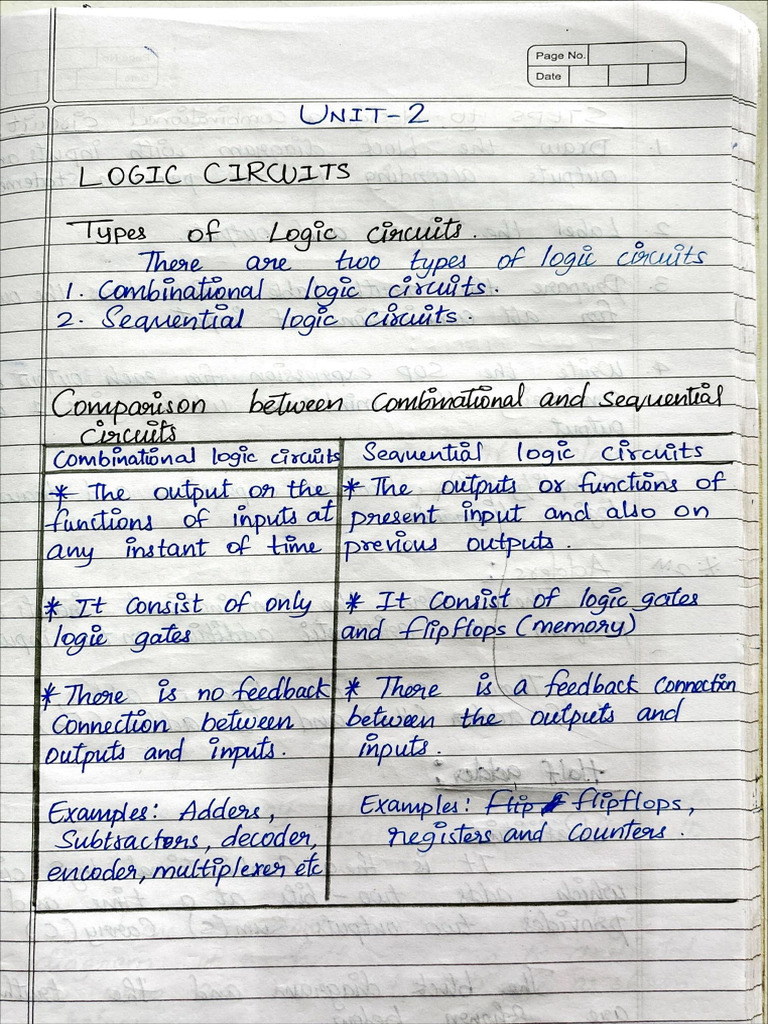 Page No.
Date
UNIT-2
LOGIC CIRCUITS
Types of Logic circuits.
There are two types of logic circuits
1. Combinational logic circuits.
2. Sequential logic circuits.
Comparison between Combinational and sequential
circuits
Combinational logic circuits
* The output or the
functions of inputs at
any instant of time
* It consist of only
logic gates
* There is no feedback
Connection between
outputs and inputs.
Examples: Adders,
Subtractors, decoder,
encoder, multiplexer etc
Sequential logic circuits
* The outputs or functions of
present input and also on
previous outputs.
* It consist of logic gates
and flipflops (memory)
* There is a feedback Connection
between the outputs and
inputs.
Examples: flip flipflops,
registers and counters.